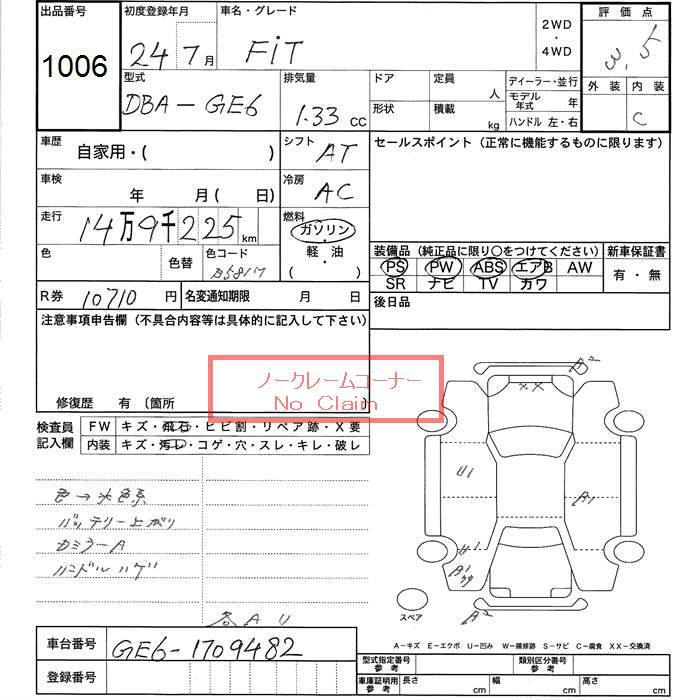 出品番号 初度登録年月 車名・グレード 2WD ・ 4WD 評価点
1006 24 7月 FiT 3.5
型式 排気量 ドア 定員 人 ディーラー・並行 外装 内装
DBA-GE6 1.33 CC 形状 積載 kg モデル年式 年 C
ハンドル 左・右
車歴 自家用・( ) シフト AT セールスポイント (正常に機能するものに限ります)
車検 年 月( 日) 冷房 AC
走行 14万9千225km 燃料 ガソリン・軽・油 ( )
色 色替 色コード B581M 装備品 (純正品に限り○をつけてください) 新車保証書
PS PW ABS エアB AW 有・無
SR ナビ TV カワ
R券 10710円 名変通知期限 月 日 後日品
注意事項申告欄 (不具合内容等は具体的に記入して下さい)
ノークレームコーナー
No Claim
修復歴 有 〔箇所 〕
検査員記入欄 FW キズ・飛石・ヒビ割・リペア跡・X要
内装 キズ・汚レ・コゲ・穴・スレ・キレ・破レ
A2
XX
U1 A1
色→水色系
バッテリー上がり
カミラーA
ハンドルハゲ
U1
A1
各AU
スペア A2
A-キズ E-エクボ U-凹み W-補修跡 S-サビ C-腐食 XX-交換済
車台番号 GE6-1709482
登録番号
型式指定番号 参考 類別区分番号 参考
車庫証明用 参考 長さ cm 幅 cm 高さ cm